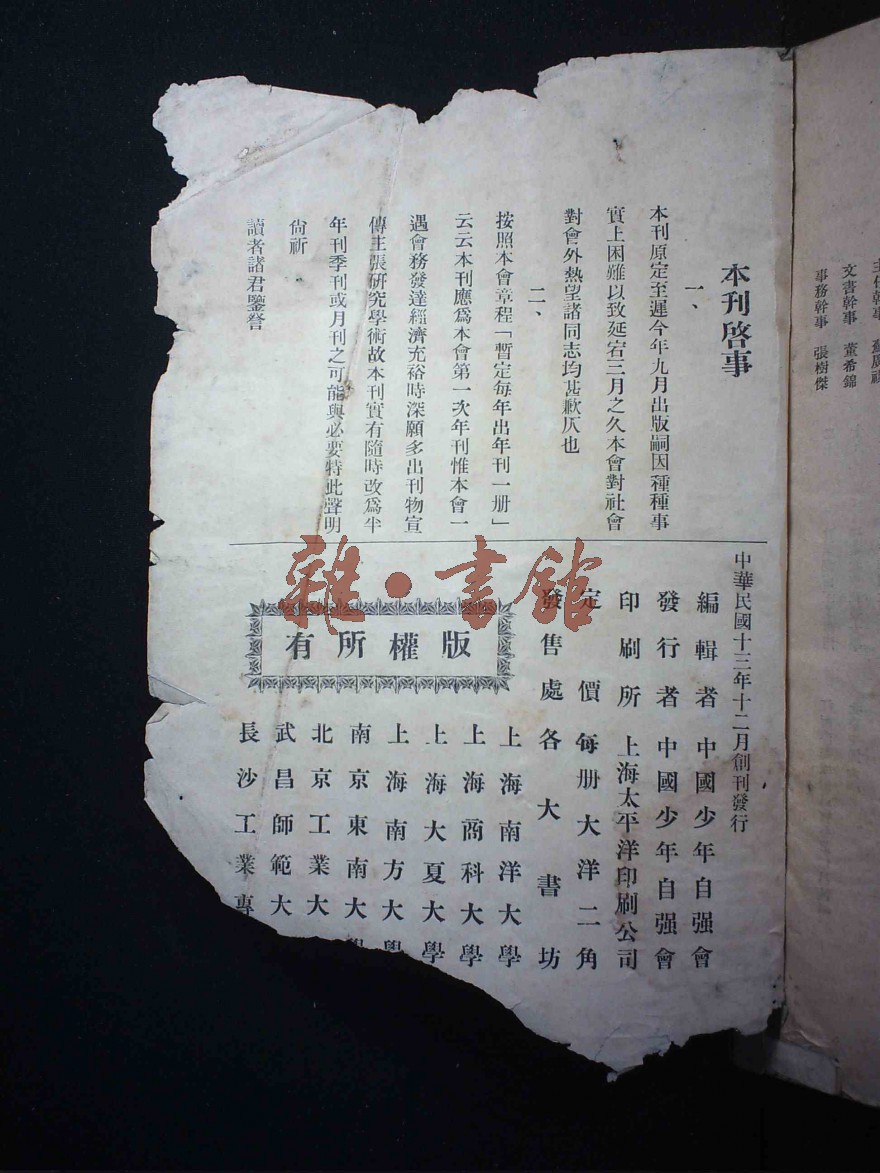 主任幹事
文書幹事 董希錦
事務幹事 張樹傑
本刊啓事
一、
本刊原定至遲今年九月出版嗣因種種事
實上困難以致延宕三月之久本會對社會
對會外熱望諸同志均甚歉仄也
二、
按照本會章程「暫定每年出年刊一册」
云云本刊應爲本會第一次年刊惟本會一
遇會務發達經濟充裕時深願多出刊物宣
傳主張研究學術故本刊實有隨時改爲半
年刊季刊或月刊之可能與必要特此聲明
尙祈
讀者諸君鑒詧
中華民國十三年十二月創刊發行
編輯者 中國少年自强會
發行者 中國少年自强會
印刷所 上海太平洋印刷公司
定價 每册大洋二角
發售處 各大書坊
上海南洋大學
上海商科大學
上海大夏大學
上海南方大學
南京東南大學
北京工業大
武昌師範大
長沙工業專
版權所有
雜·書館